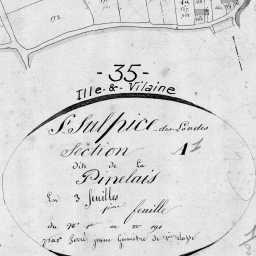 - 35 -
Ille-&-Vilaine
St Sulpice des Landes
Section A1
dite de la
Pinelais
En 3 feuilles
1ère feuille
du No 1 au No 190
par géomètre de 1ère classe